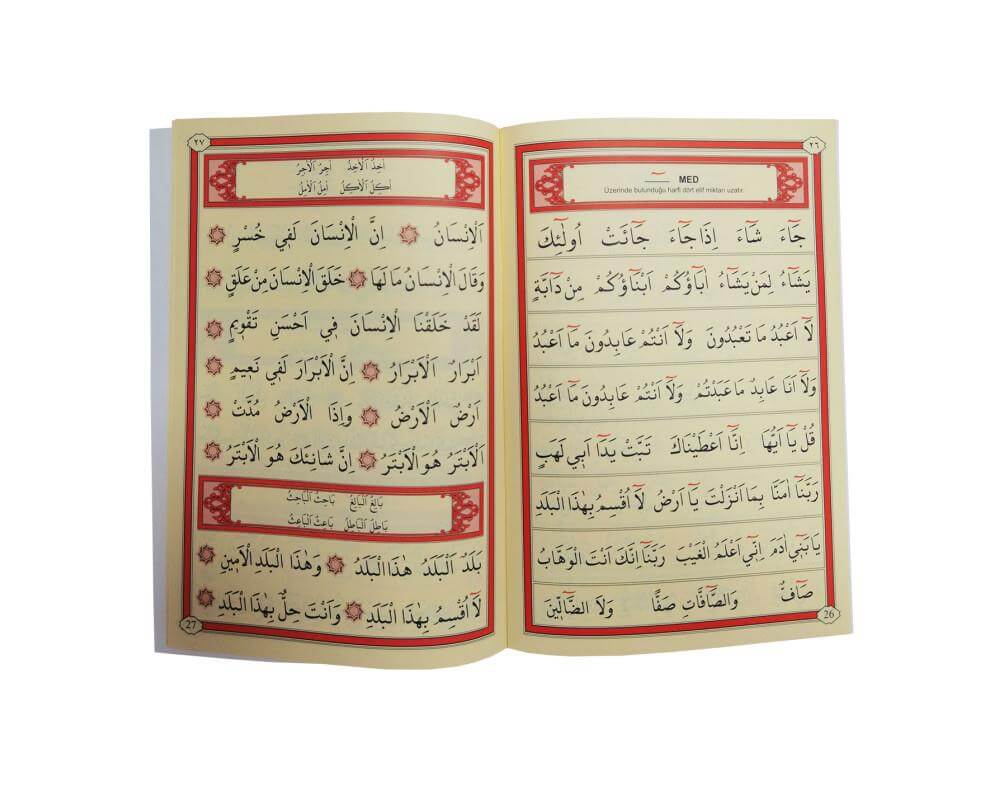 ٢٦
MED
Üzerinde bulunduğu harfi dört elif miktarı uzatır.
جَٓاءَ شَٓاءَ اِذَا جَٓاءَ جَٓائَتْ اُولٰٓئِكَ
يَشَٓاءُ لِمَنْ يَشَٓاءُ اٰبَٓاؤُكُمْ اَبْنَٓاؤُكُمْ مِنْ دَٓابَّةٍ
لَٓا اَعْبُدُ مَا تَعْبُدُونَ وَلَٓا اَنْتُمْ عَابِدُونَ مَٓا اَعْبُدُ
وَلَٓا اَنَا عَابِدٌ مَا عَبَدْتُمْ وَلَٓا اَنْتُمْ عَابِدُونَ مَٓا اَعْبُدُ
قُلْ يَٓا اَيُّهَا اِنَّٓا اَعْطَيْنَاكَ تَبَّتْ يَدَٓا اَبِي لَهَبٍ
رَبَّنَٓا اٰمَنَّا بِمَٓا اَنْزَلْتَ يَٓا اَرْضُ لَٓا اُقْسِمُ بِهٰذَا الْبَلَدِ
يَا بَنِٓي اٰدَمَ اِنِّٓي اَعْلَمُ الْغَيْبَ رَبَّنَٓا اِنَّكَ اَنْتَ الْوَهَّابُ
صَٓافٌّ وَالصَّٓافَّاتِ صَفًّا وَلَا الضَّٓالِّينَ
26
٢٧
اٰخِذٌ اَلْاٰخِذُ اٰجِرٌ اَلْاٰجِرُ
اٰكِلٌ اَلْاٰكِلُ اٰمِلٌ اَلْاٰمِلُ
اَلْاِنْسَانُ اِنَّ الْاِنْسَانَ لَفِي خُسْرٍ
وَقَالَ الْاِنْسَانُ مَا لَهَا خَلَقَ الْاِنْسَانَ مِنْ عَلَقٍ
لَقَدْ خَلَقْنَا الْاِنْسَانَ فِي اَحْسَنِ تَقْوِيمٍ
اَبْرَارٌ اَلْاَبْرَارُ اِنَّ الْاَبْرَارَ لَفِي نَعِيمٍ
اَرْضٌ اَلْاَرْضُ وَاِذَا الْاَرْضُ مُدَّتْ
اَلْاَبْتَرُ هُوَ الْاَبْتَرُ اِنَّ شَانِئَكَ هُوَ الْاَبْتَرُ
بَالِغٌ اَلْبَالِغُ بَاحِثٌ اَلْبَاحِثُ
بَاطِلٌ اَلْبَاطِلُ بَاعِثٌ اَلْبَاعِثُ
بَلَدٌ اَلْبَلَدُ هٰذَا الْبَلَدُ وَهٰذَا الْبَلَدِ الْاَمِينِ
لَٓا اُقْسِمُ بِهٰذَا الْبَلَدِ وَاَنْتَ حِلٌّ بِهٰذَا الْبَلَدِ
27